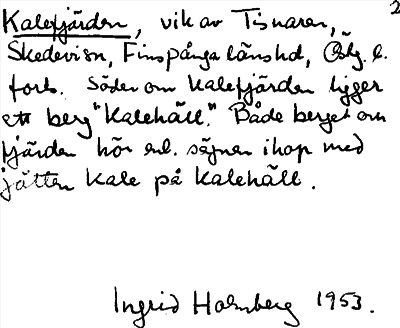 2
Kalefjärden, vik av Tisnaren,
Skedevi sn, Finspånga länshd, Östg. l.
forts. Söder om Kalefjärden ligger
ett berg "Kalehäll." Både berget om
fjärden hör enl. sägnen ihop med
jätten Kale på Kalehäll.
Ingrid Holmberg 1953.